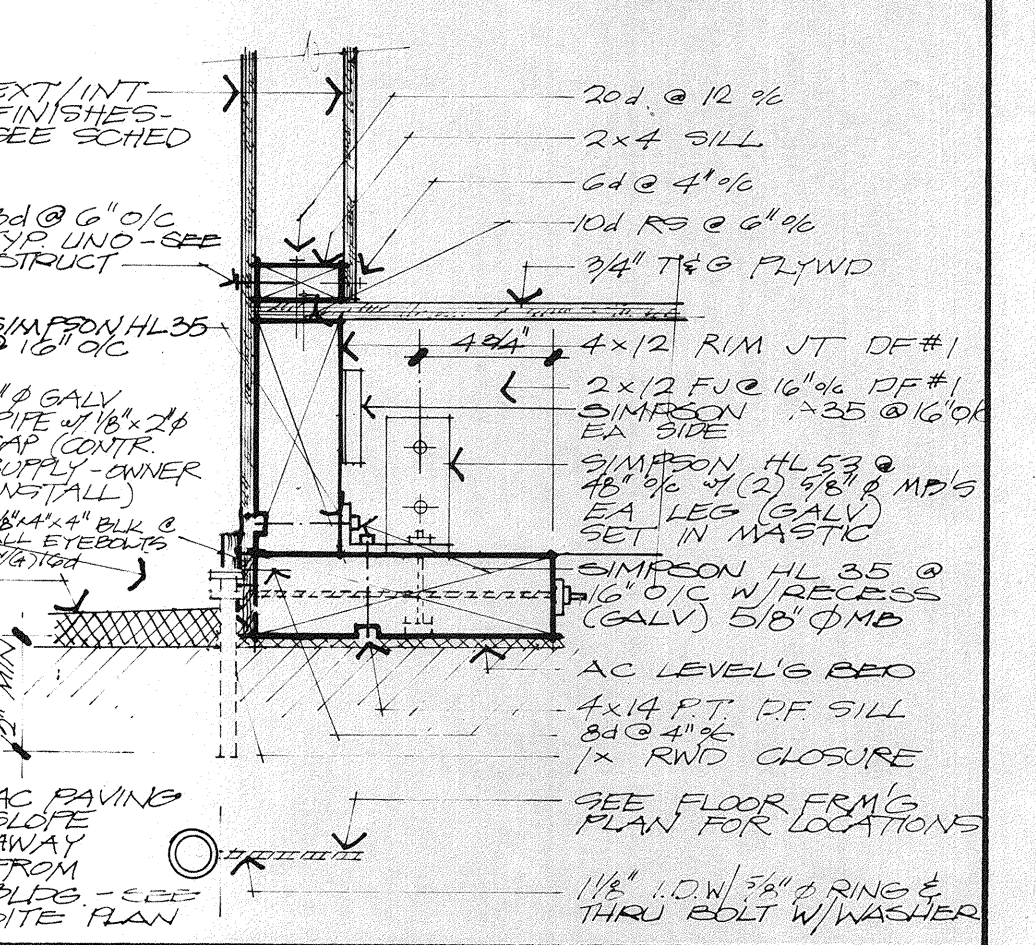 EXT/INT
FINISHES-
SEE SCHED
8d @ 6" O/C
TYP. UNO-SEE
STRUCT
SIMPSON HL35
@ 16" O/C
"Ø GALV
PIPE W/ 1/8"x2"Ø
CAP (CONTR.
SUPPLY-OWNER
INSTALL)
"x4"x4" BLK @
ALL EYEBOLTS
W/(4)16d
2" MIN
AC PAVING
SLOPE
AWAY
FROM
BLDG.-SEE
SITE PLAN
4 3/4"
20d. @ 12 o/c
2x4 SILL
6d @ 4" o/c
10d RS @ 6" o/c
3/4" T&G PLYWD
4x12 RIM JT DF#1
2x12 FJ @ 16" o/c DF#1
SIMPSON A35 @ 16" O/C
EA SIDE
SIMPSON HL53 @
48" o/c w/ (2) 5/8" Ø MB'S
EA LEG (GALV)
SET IN MASTIC
SIMPSON HL 35 @
16" O/C W/RECESS
(GALV) 5/8" Ø MB
AC LEVEL'G BED
4x14 P.T. D.F. SILL
8d @ 4" o/c
1x RWD CLOSURE
SEE FLOOR FRM'G
PLAN FOR LOCATIONS
1 1/8" I.D. W/ 5/8" Ø RING &
THRU BOLT W/WASHER